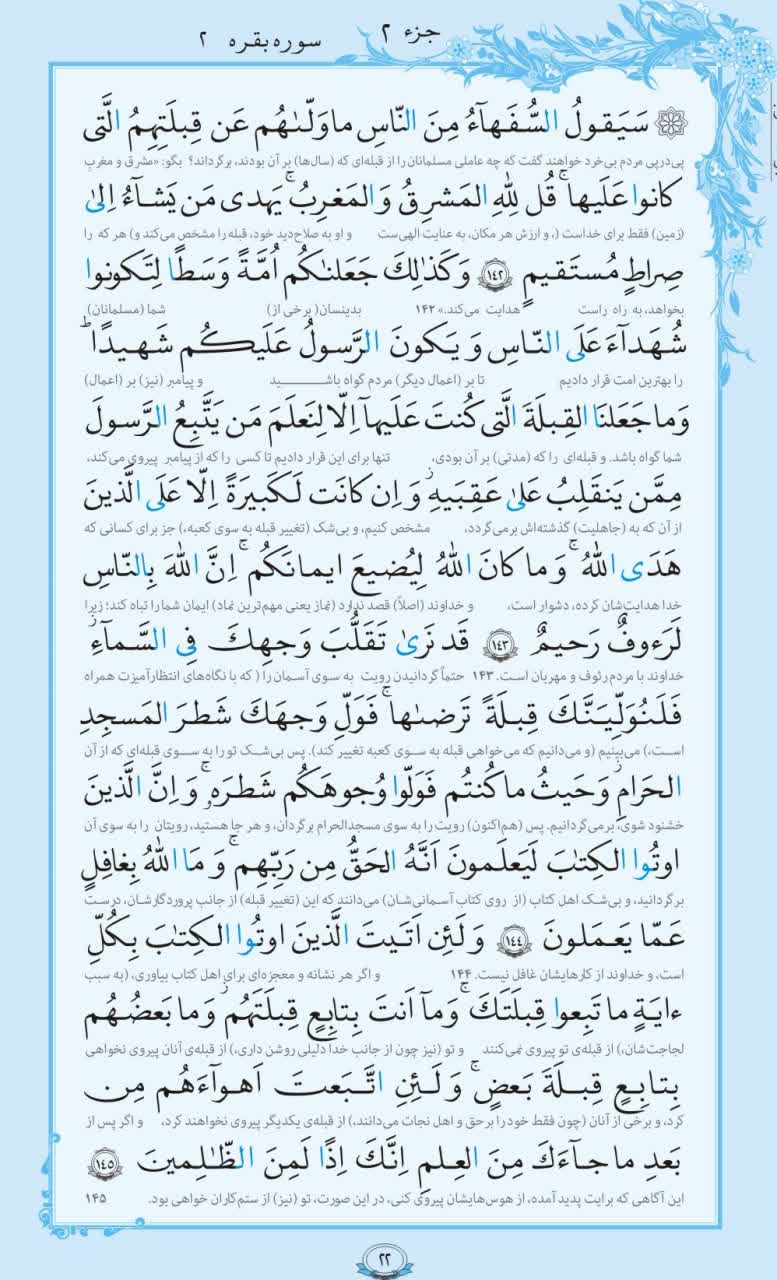 جزء ۲
سوره بقره ۲
سَيَقولُ السُّفَهاۤءُ مِنَ النّاسِ ماوَلّىٰهُم عَن قِبلَتِهِمُ الَّتى
پی‌درپی مردم بی‌خرد خواهند گفت که چه عاملی مسلمانان را از قبله‌ای که (سال‌ها) بر آن بودند، برگرداند؟ بگو: «مشرق و مغربِ
كانوا عَلَيها ۚ قُل لِلّٰهِ المَشرِقُ وَالمَغرِبُ ۚ يَهدى مَن يَشاۤءُ اِلىٰ
(زمین) فقط برای خداست (، و ارزش هر مکان، به عنایت الهی‌ست و او به صلاح‌دید خود، قبله را مشخص می‌کند و) هر که را
صِراطٍ مُستَقيمٍ ۱۴۲ وَكَذٰلِكَ جَعَلنٰكُم اُمَّةً وَسَطًا لِتَكونوا
بخواهد، به راه راست هدایت می‌کند.» ۱۴۲ بدینسان( برخی از) شما (مسلمانان)
شُهَداۤءَ عَلَى النّاسِ وَ يَكونَ الرَّسولُ عَلَيكُم شَهيدًا ۗ
را بهترین امت قرار دادیم تا بر (اعمال دیگر) مردم گواه باشید و پیامبر (نیز) بر (اعمال)
وَما جَعَلنَا القِبلَةَ الَّتى كُنتَ عَلَيهاۤ اِلّا لِنَعلَمَ مَن يَتَّبِعُ الرَّسولَ
شما گواه باشد. و قبله‌ای را که (مدتی) بر آن بودی، تنها برای این قرار دادیم تا کسی را که از پیامبر پیروی می‌کند،
مِمَّن يَنقَلِبُ عَلىٰ عَقِبَيهِ ۚ وَ اِن كانَت لَكَبيرَةً اِلّا عَلَى الَّذينَ
از آن که به (جاهلیت) گذشته‌اش برمی‌گردد، مشخص کنیم، و بی‌شک (تغییر قبله به سوی کعبه،) جز برای کسانی که
هَدَى اللّٰهُ ۚ وَ ما كانَ اللّٰهُ لِيُضيعَ ايمانَكُم ۚ اِنَّ اللّٰهَ بِالنّاسِ
خدا هدایت‌شان کرده، دشوار است، و خداوند (اصلاً) قصد ندارد (نماز یعنی مهم‌ترین نماد) ایمان شما را تباه کند؛ زیرا
لَرَءوفٌ رَحيمٌ ۱۴۳ قَد نَرىٰ تَقَلُّبَ وَجهِكَ فِى السَّماۤءِ ۖ
خداوند با مردم رئوف و مهربان است. ۱۴۳ حتماً گردانیدن رویت به سوی آسمان را ( که با نگاه‌های انتظارآمیزت همراه
فَلَنُوَلِّيَنَّكَ قِبلَةً تَرضىٰها ۚ فَوَلِّ وَجهَكَ شَطرَ المَسجِدِ
است،) می‌بینیم (و می‌دانیم که می‌خواهی قبله به سوی کعبه تغییر کند). پس بی‌شک تو را به سوی قبله‌ای که از آن
الحَرامِ ۚ وَحَيثُ ما كُنتُم فَوَلّوا وُجوهَكُم شَطرَهٗ ۚ وَ اِنَّ الَّذينَ
خشنود شوی، برمی‌گردانیم. پس (هم‌اکنون) رویت را به سوی مسجدالحرام برگردان، و هر جا هستید، رویتان را به سوی آن
اوتُوا الكِتٰبَ لَيَعلَمونَ اَنَّهُ الحَقُّ مِن رَبِّهِم ۗ وَ مَا اللّٰهُ بِغافِلٍ
برگردانید، و بی‌شک اهل کتاب (از روی کتاب آسمانی‌شان) می‌دانند که این (تغییر قبله) از جانب پروردگارشان، درست
عَمّا يَعمَلونَ ۱۴۴ وَ لَئِن اَتَيتَ الَّذينَ اوتُوا الكِتٰبَ بِكُلِّ
است، و خداوند از کارهایشان غافل نیست. ۱۴۴ و اگر هر نشانه و معجزه‌ای برای اهل کتاب بیاوری، (به سبب
ءايَةٍ ما تَبِعوا قِبلَتَكَ ۚ وَماۤ اَنتَ بِتابِعٍ قِبلَتَهُم ۚ وَما بَعضُهُم
لجاجت‌شان،) از قبله‌ی تو پیروی نمی‌کنند و تو (نیز چون از جانب خدا دلیلی روشن داری،) از قبله‌ی آنان پیروی نخواهی
بِتابِعٍ قِبلَةَ بَعضٍ ۚ وَ لَئِنِ اتَّبَعتَ اَهواۤءَهُم مِن
کرد، و برخی از آنان (چون فقط خود را بر حق و اهل نجات می‌دانند،) از قبله‌ی یکدیگر پیروی نخواهند کرد، و اگر پس از
بَعدِ ما جاۤءَكَ مِنَ العِلمِ اِنَّكَ اِذًا لَمِنَ الظّٰلِمينَ ۱۴۵
این آگاهی که برایت پدید آمده، از هوس‌هایشان پیروی کنی، در این صورت، تو (نیز) از ستم‌کاران خواهی بود. ۱۴۵
۲۲